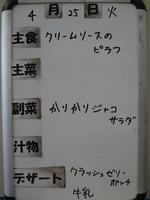 4月25日火
主食 クリームソースの
ピラフ
主菜
副菜 かりかりジャコ
サラダ
汁物
デザート クラッシュゼリー
ポンチ
牛乳